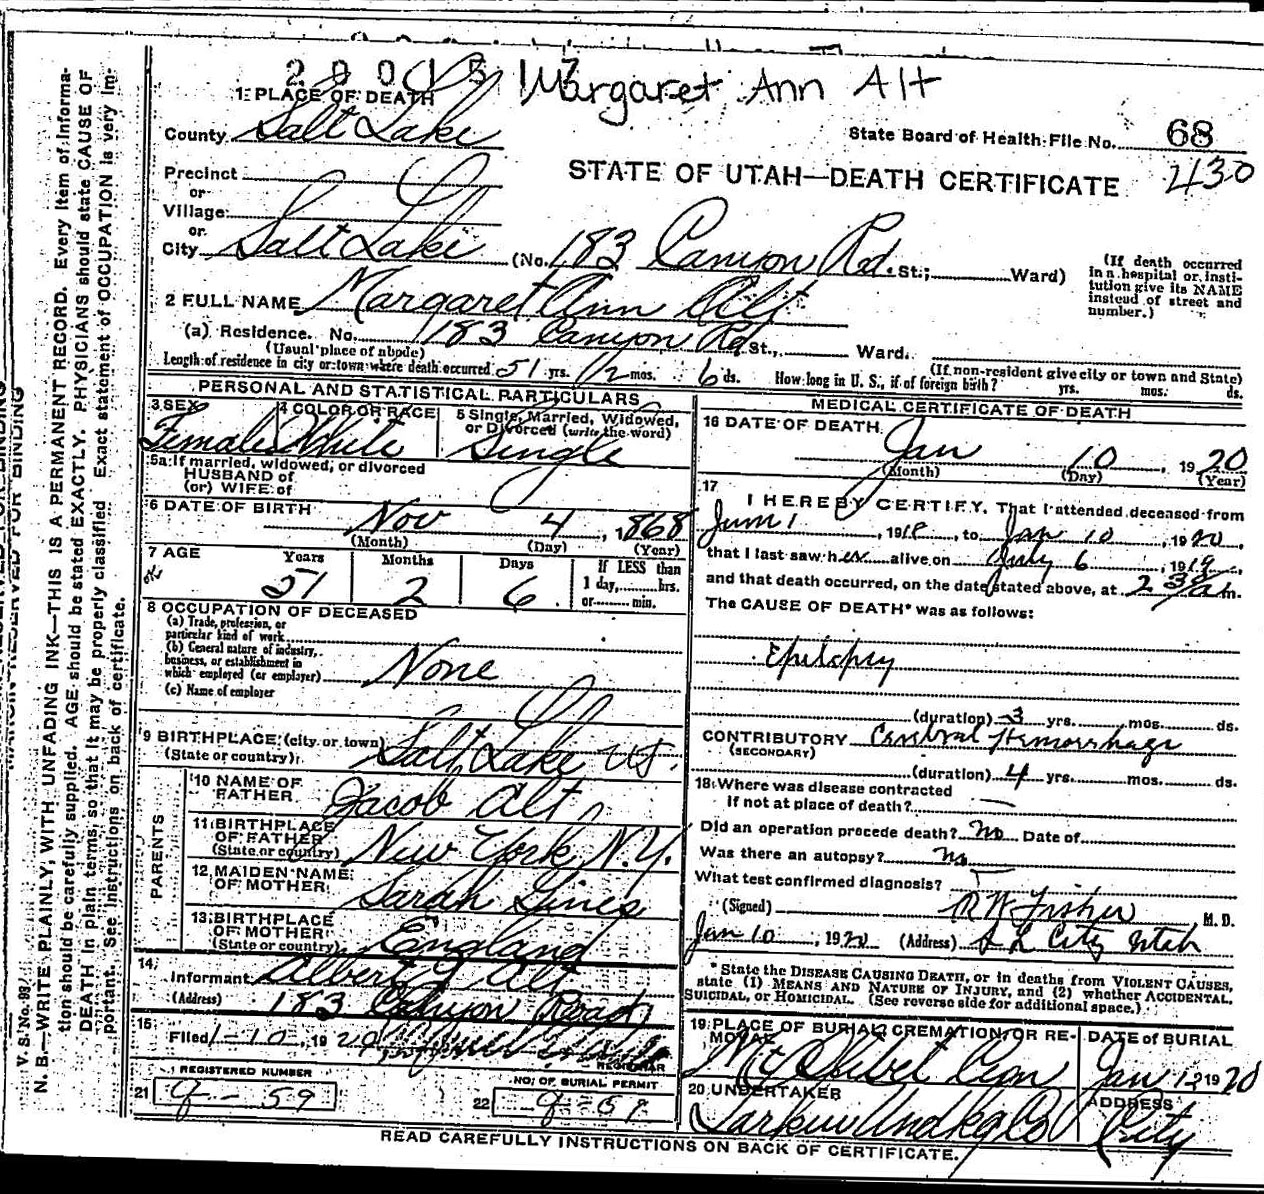 2 0 0 1 5 1 7 Margaret Ann Alt
1 PLACE OF DEATH
County Salt Lake
State Board of Health File No. 68
430
STATE OF UTAH—DEATH CERTIFICATE
Precinct
or
Village
or
City Salt Lake (No. 183 Canyon Rd. St.; Ward)
(If death occurred in a hospital or insti-
tution give its NAME
instead of street and
number.)
2 FULL NAME Margaret Ann Alt
(a) Residence. No. 183 Canyon Rd St., Ward.
(Usual place of abode) (If non-resident give city or town and State)
Length of residence in city or town where death occurred 51 yrs. 2 mos. 6 ds. How long in U. S., if of foreign birth? yrs. mos. ds.
PERSONAL AND STATISTICAL PARTICULARS
3 SEX 4 COLOR OR RACE 5 Single, Married, Widowed,
or Divorced (write the word)
Female White Single
5a If married, widowed, or divorced
HUSBAND of
(or) WIFE of
6 DATE OF BIRTH
Nov 4, 1868
(Month) (Day) (Year)
7 AGE Years Months Days If LESS than
1 day, hrs.
or min.
51 2 6
8 OCCUPATION OF DECEASED
(a) Trade, profession, or
particular kind of work
(b) General nature of industry,
business, or establishment in
which employed (or employer) None
(c) Name of employer
9 BIRTHPLACE (city or town)
(State or country) Salt Lake UT.
PARENTS
10 NAME OF
FATHER Jacob Alt
11 BIRTHPLACE
OF FATHER
(State or country) New York N.Y.
12 MAIDEN NAME
OF MOTHER Sarah Gines
13 BIRTHPLACE
OF MOTHER
(State or country) England
14
Informant Albert J Alt
(Address) 183 Canyon Road
15
Filed 1-10, 1920
REGISTRAR
REGISTERED NUMBER
21 9 - 59
NO. OF BURIAL PERMIT
22 9 59
MEDICAL CERTIFICATE OF DEATH
16 DATE OF DEATH
Jan 10, 1920
(Month) (Day) (Year)
17
I HEREBY CERTIFY, That I attended deceased from
June 1, 1918, to Jan 10, 1920,
that I last saw her alive on July 6, 1919,
and that death occurred, on the date stated above, at 2 30 a m.
The CAUSE OF DEATH* was as follows:
Epilepsy
(duration) 3 yrs. mos. ds.
CONTRIBUTORY Cerebral Hemorrhage
(SECONDARY)
(duration) 4 yrs. mos. ds.
18 Where was disease contracted
if not at place of death? —
Did an operation precede death? no Date of
Was there an autopsy? no
What test confirmed diagnosis? —
(Signed) R W Fisher M. D.
Jan 10, 1920 (Address) S L City Utah
*State the DISEASE CAUSING DEATH, or in deaths from VIOLENT CAUSES,
state (1) MEANS AND NATURE OF INJURY, and (2) whether ACCIDENTAL,
SUICIDAL, or HOMICIDAL. (See reverse side for additional space.)
19 PLACE OF BURIAL, CREMATION, OR RE-
MOVAL DATE of BURIAL
Mt Olivet Cem Jan 12 1920
20 UNDERTAKER ADDRESS
Larkin Undkg Co City
READ CAREFULLY INSTRUCTIONS ON BACK OF CERTIFICATE.
V. S. No. 93
N. B.—WRITE PLAINLY, WITH UNFADING INK—THIS IS A PERMANENT RECORD. Every item of informa-
tion should be carefully supplied. AGE should be stated EXACTLY. PHYSICIANS should state CAUSE OF
DEATH in plain terms, so that it may be properly classified. Exact statement of OCCUPATION is very im-
portant. See instructions on back of certificate.
RESERVED FOR BINDING